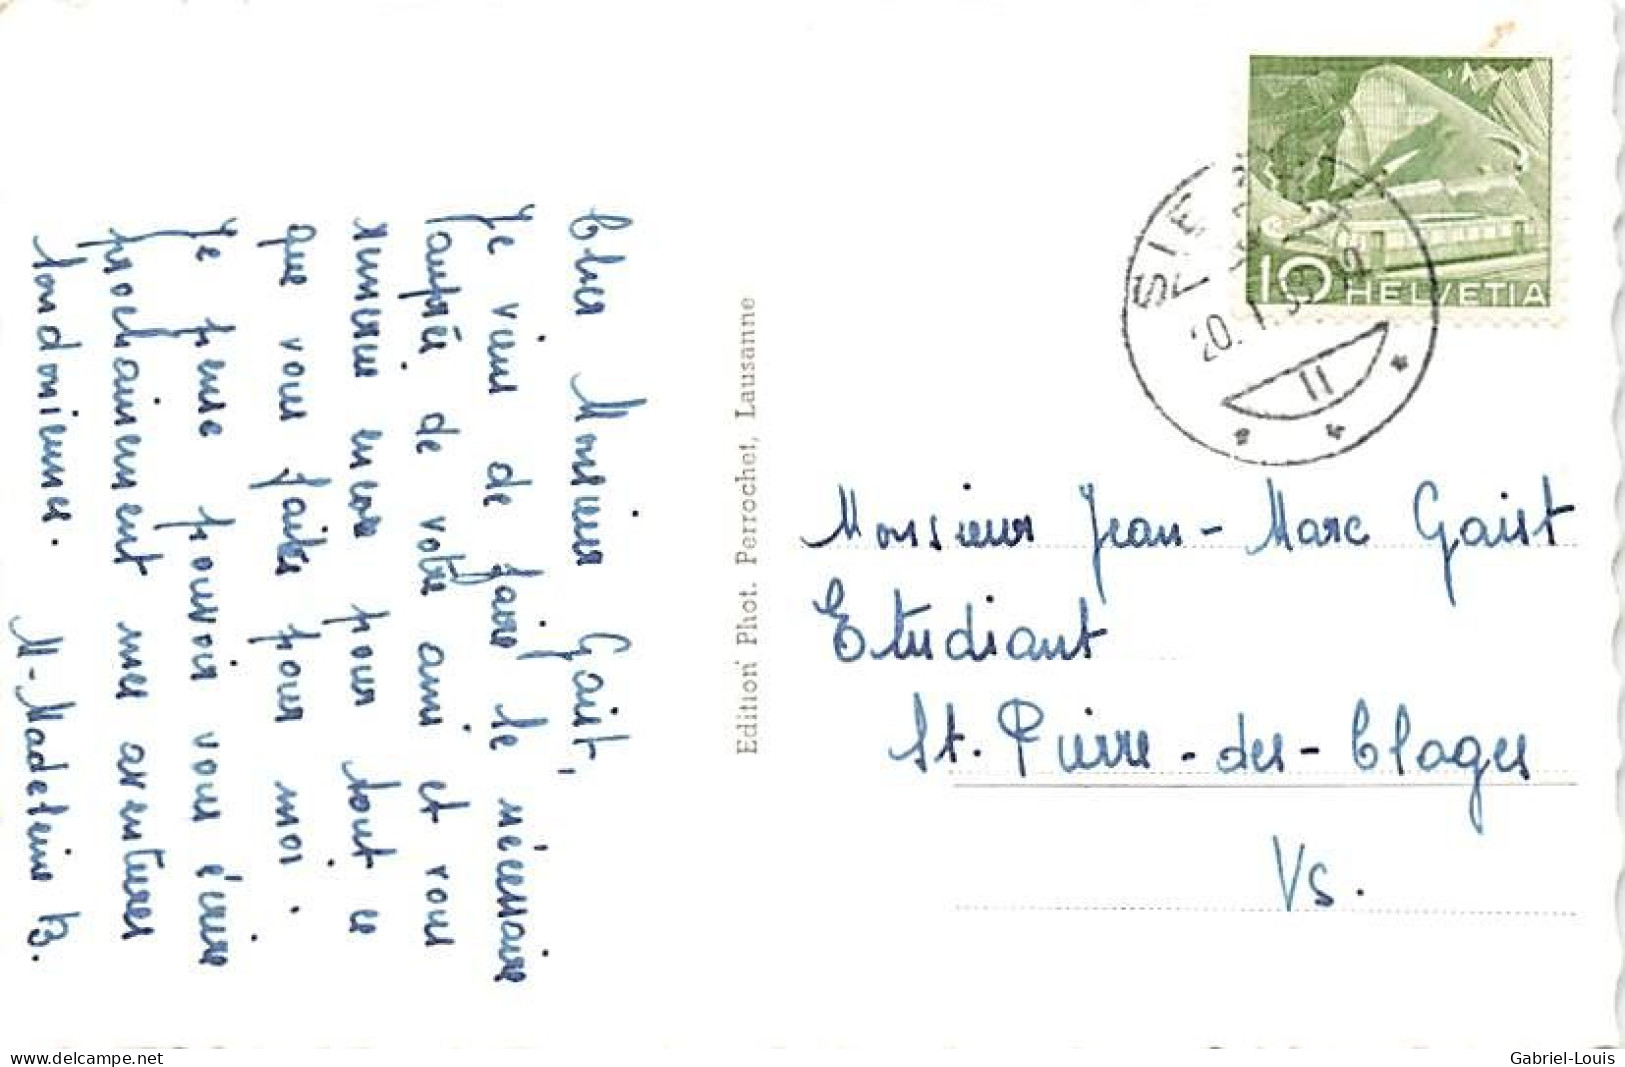 Cher Monsieur Gaist,
Je viens de faire le nécessaire
auprès de votre ami et vous
remercie encore pour tout ce
que vous faites pour moi.
Je pense pouvoir vous écrire
prochainement mes aventures
londoniennes.
M-Madeleine B.
Edition Phot. Perrochet, Lausanne
10 HELVETIA
SIERRE
20. 1. 5
11
Monsieur Jean-Marc Gaist
Etudiant
St. Pierre-des-Clages
Vs.
www.delcampe.net
Gabriel-Louis